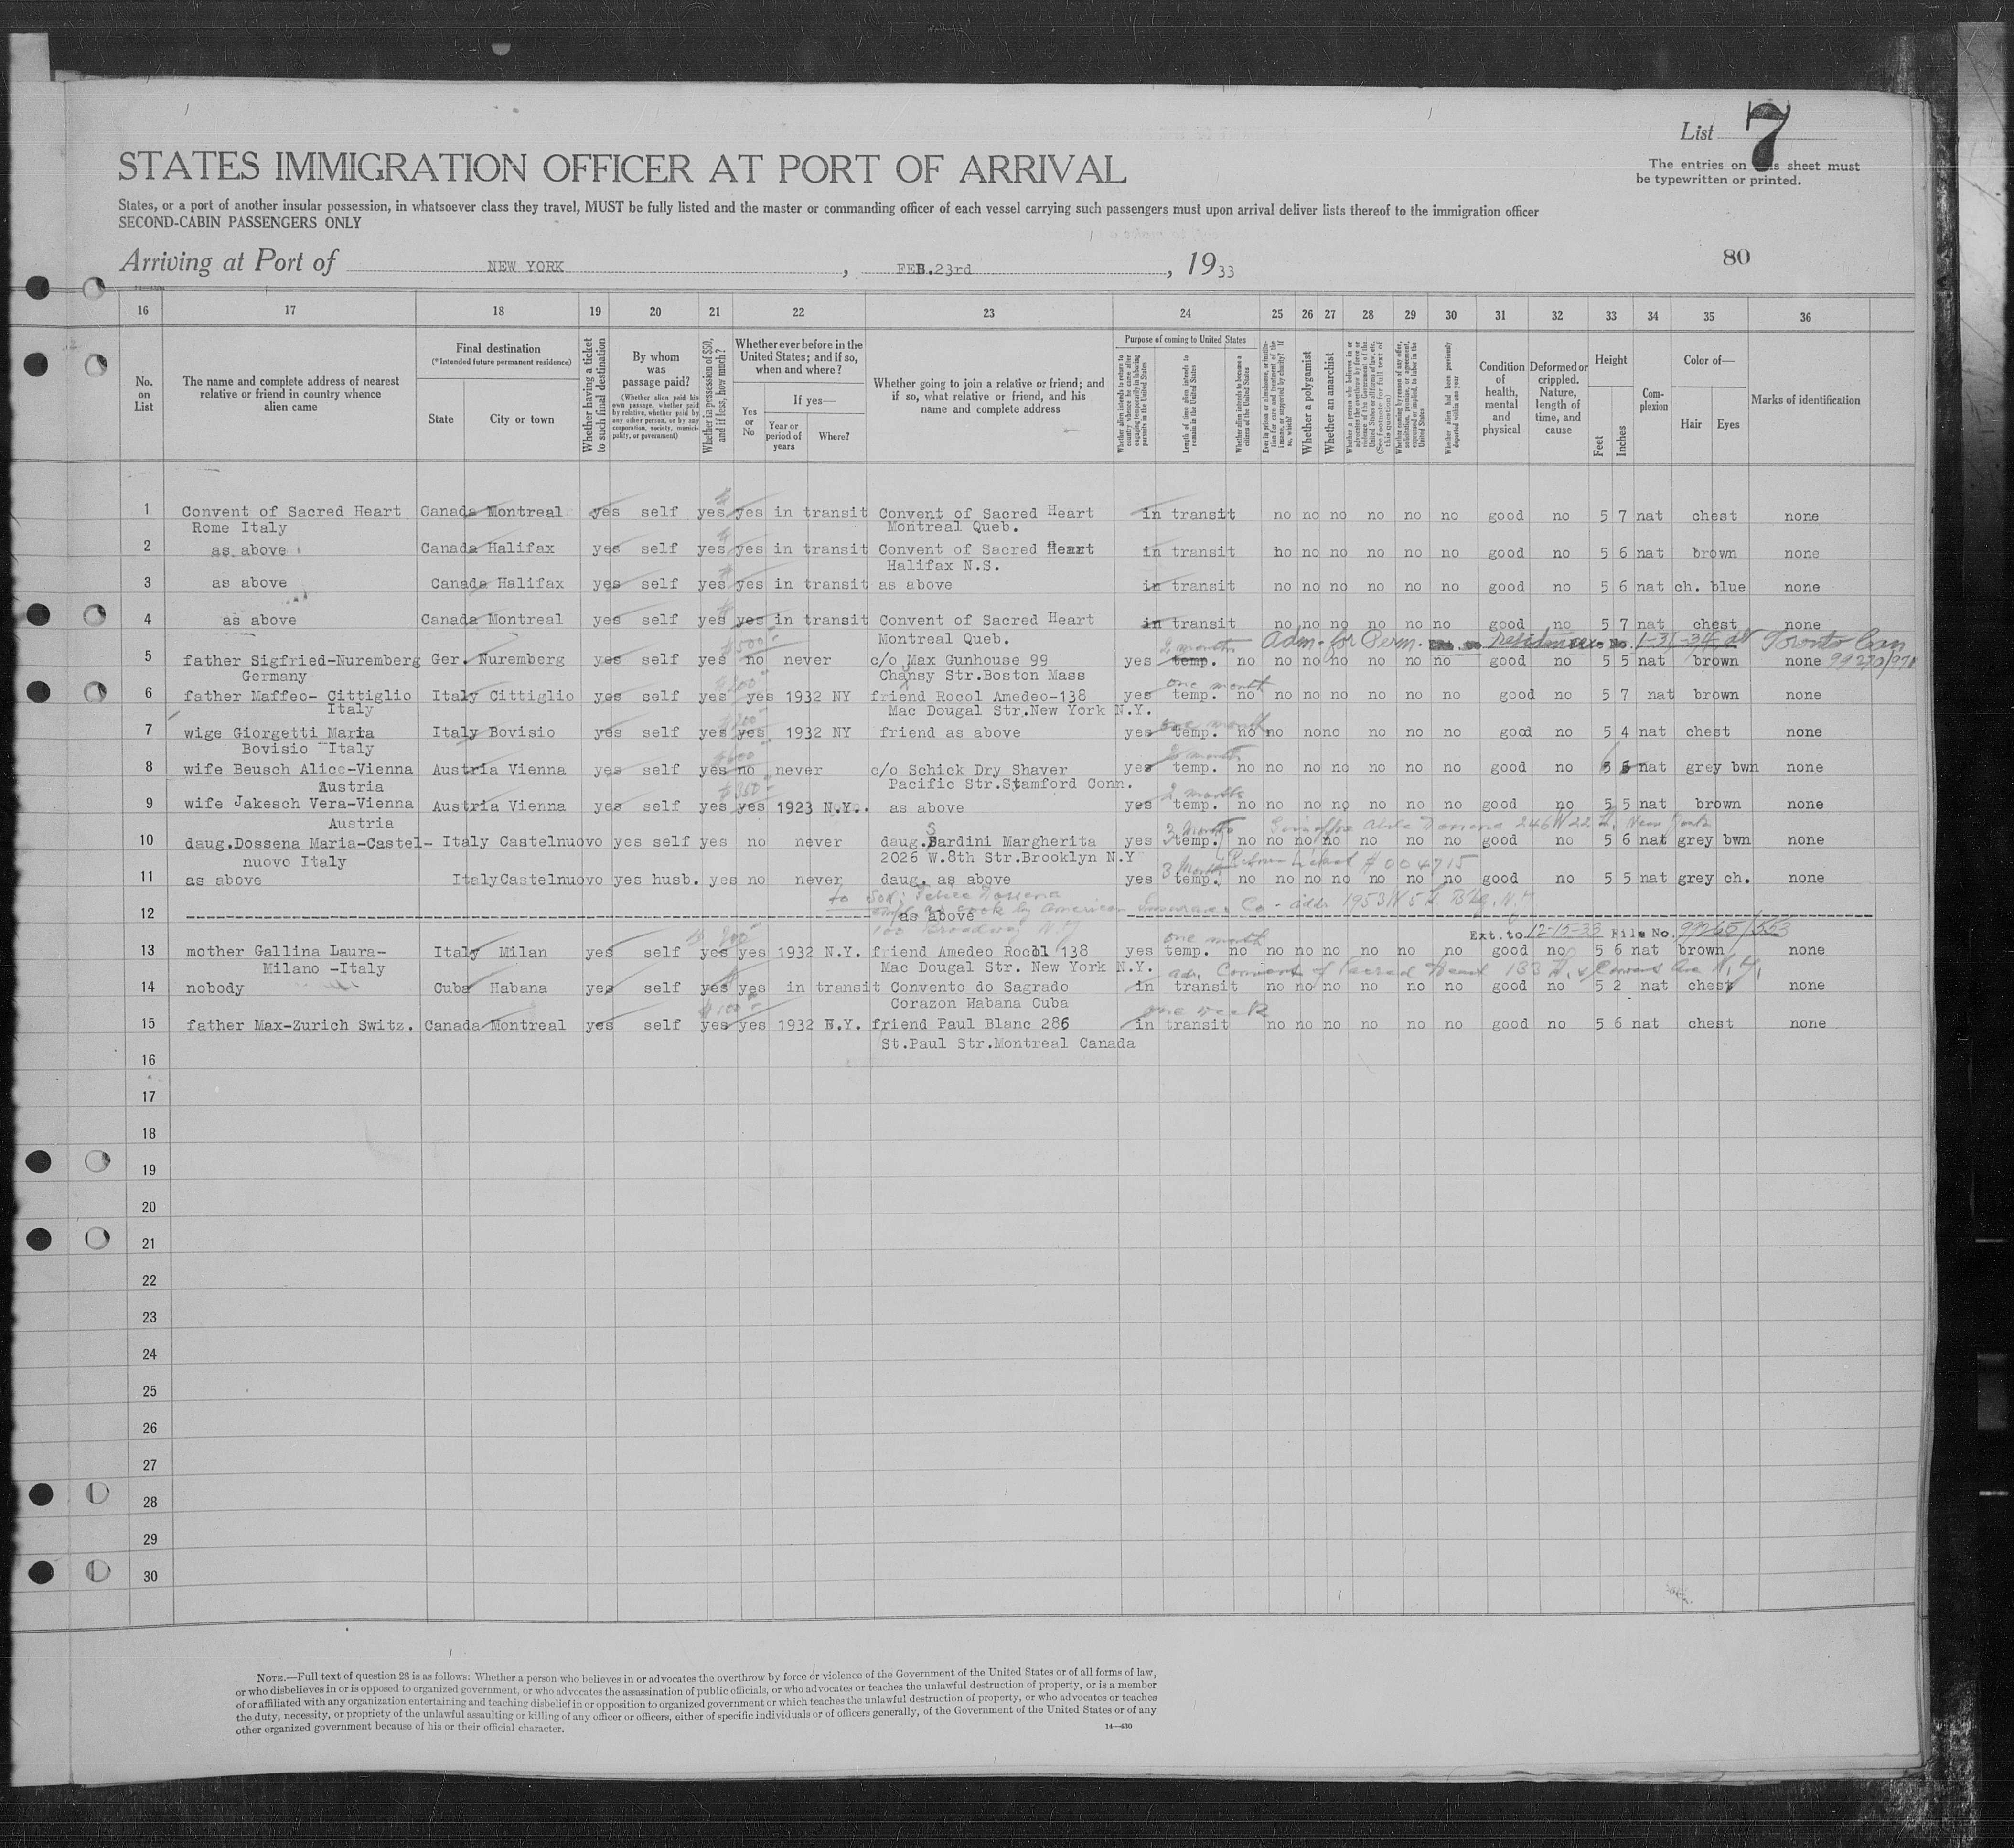 List 7
STATES IMMIGRATION OFFICER AT PORT OF ARRIVAL
The entries on this sheet must
be typewritten or printed.
States, or a port of another insular possession, in whatsoever class they travel, MUST be fully listed and the master or commanding officer of each vessel carrying such passengers must upon arrival deliver lists thereof to the immigration officer
SECOND-CABIN PASSENGERS ONLY
Arriving at Port of NEW YORK, FEB.23rd, 1933
80
16 17 18 19 20 21 22 23 24 25 26 27 28 29 30 31 32 33 34 35 36
No. on List
The name and complete address of nearest relative or friend in country whence alien came
Final destination
(*Intended future permanent residence)
State
City or town
Whether having a ticket to such final destination
By whom was passage paid?
(Whether alien paid his own passage, whether paid by relative, whether paid by any other person, or by any corporation, society, municipality, or government)
Whether in possession of $50, and if less, how much?
Whether ever before in the United States; and if so, when and where?
Yes or No
If yes—
Year or period of years
Where?
Whether going to join a relative or friend; and if so, what relative or friend, and his name and complete address
Purpose of coming to United States
Whether alien intends to return to country whence he came after engaging temporarily in laboring pursuits in the United States
Length of time alien intends to remain in the United States
Whether alien intends to become a citizen of the United States
Whether a polygamist
Whether an anarchist
Whether alien had been previously deported within one year
Condition of health, mental and physical
Deformed or crippled. Nature, length of time, and cause
Height
Feet
Inches
Complexion
Color of—
Hair
Eyes
Marks of identification
1 Convent of Sacred Heart Canada Montreal yes self yes yes in transit Convent of Sacred Heart in transit no no no no no no good no 5 7 nat chest none
Rome Italy Montreal Queb.
2 as above Canada Halifax yes self yes yes in transit Convent of Sacred Heart in transit no no no no no no good no 5 6 nat brown none
Halifax N.S.
3 as above Canada Halifax yes self yes yes in transit as above in transit no no no no no no good no 5 6 nat ch. blue none
4 as above Canada Montreal yes self yes yes in transit Convent of Sacred Heart in transit no no no no no no good no 5 7 nat chest none
Montreal Queb.
$500 2 months Adm. for Perm. residence No. 1-31-34 at Toronto Can
5 father Sigfried-Nuremberg Ger. Nuremberg yes self yes no never c/o Max Gunhouse 99 yes temp. no no no no no no no good no 5 5 nat brown none 99270/971
Germany Chansy Str.Boston Mass
$200 one month
6 father Maffeo- Cittiglio Italy Cittiglio yes self yes yes 1932 NY friend Rocol Amedeo-138 yes temp. no no no no no no no good no 5 7 nat brown none
Italy Mac Dougal Str.New York N.Y.
$200 one month
7 wige Giorgetti Maria Italy Bovisio yes self yes yes 1932 NY friend as above yes temp. no no no no no no no good no 5 4 nat chest none
Bovisio Italy
$600 2 months
8 wife Beusch Alice-Vienna Austria Vienna yes self yes no never c/o Schick Dry Shaver yes temp. no no no no no no no good no 5 6 nat grey bwn none
Austria Pacific Str.Stamford Conn.
$350 2 months
9 wife Jakesch Vera-Vienna Austria Vienna yes self yes yes 1923 N.Y. as above yes temp. no no no no no no no good no 5 5 nat brown none
Austria
3 months 246 W 22 New York
10 daug.Dossena Maria-Castel- Italy Castelnuovo yes self yes no never daug.Sardini Margherita yes temp. no no no no no no no good no 5 6 nat grey bwn none
nuovo Italy 2026 W.8th Str.Brooklyn N.Y
3 months Return ticket #004715
11 as above Italy Castelnuovo yes husb. yes no never daug. as above yes temp. no no no no no no no good no 5 5 nat grey ch. none
to son; Felice Dossena
empl as cook by American Insurance Co - addr 1953 W 5 St. Bklg. N.Y
12 as above
100 Broadway N.Y
Ext. to 12-15-33 File No. 99265/553
$200 one month
13 mother Gallina Laura- Italy Milan yes self yes yes 1932 N.Y. friend Amedeo Rocol 138 yes temp. no no no no no no no good no 5 6 nat brown none
Milano -Italy Mac Dougal Str. New York N.Y.
ad. Convent of Sacred Heart 133 St. & Convent Ave N.Y.
14 nobody Cuba Habana yes self yes yes in transit Convento do Sagrado in transit no no no no no no good no 5 2 nat chest none
Corazon Habana Cuba
$100 one week
15 father Max-Zurich Switz. Canada Montreal yes self yes yes 1932 N.Y. friend Paul Blanc 286 in transit no no no no no no good no 5 6 nat chest none
St.Paul Str.Montreal Canada
16
17
18
19
20
21
22
23
24
25
26
27
28
29
30
NOTE.—Full text of question 28 is as follows: Whether a person who believes in or advocates the overthrow by force or violence of the Government of the United States or of all forms of law,
or who disbelieves in or is opposed to organized government, or who advocates the assassination of public officials, or who advocates or teaches the unlawful destruction of property, or is a member
of or affiliated with any organization entertaining and teaching disbelief in or opposition to organized government or which teaches the unlawful destruction of property, or who advocates or teaches
the duty, necessity, or propriety of the unlawful assaulting or killing of any officer or officers, either of specific individuals or of officers generally, of the Government of the United States or of any
other organized government because of his or their official character.
14—430